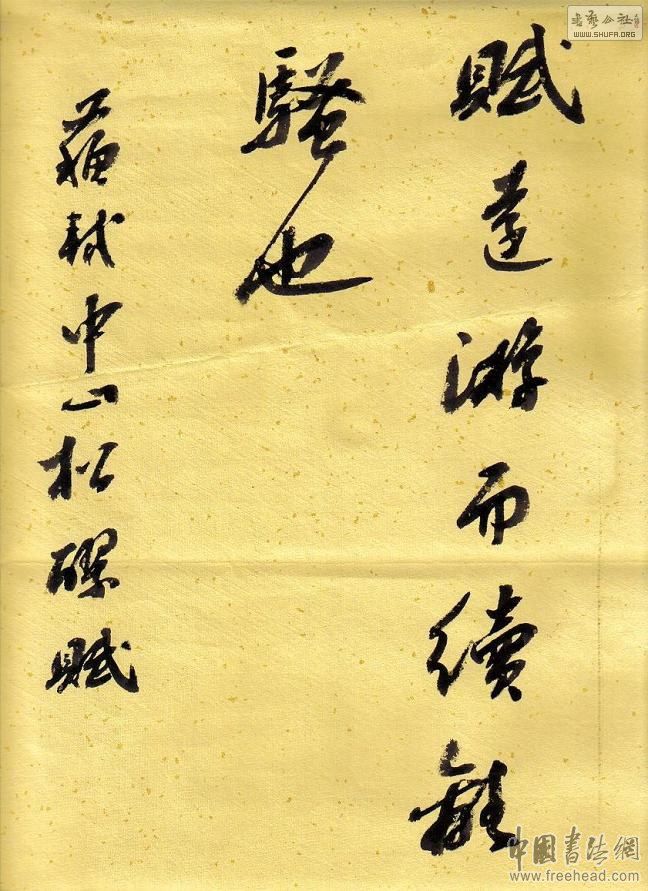 賦遠游而續離
騷也
蘇軾中山松醪賦
書藝公社
WWW.SHUFA.ORG
中國書法網
www.freehead.com